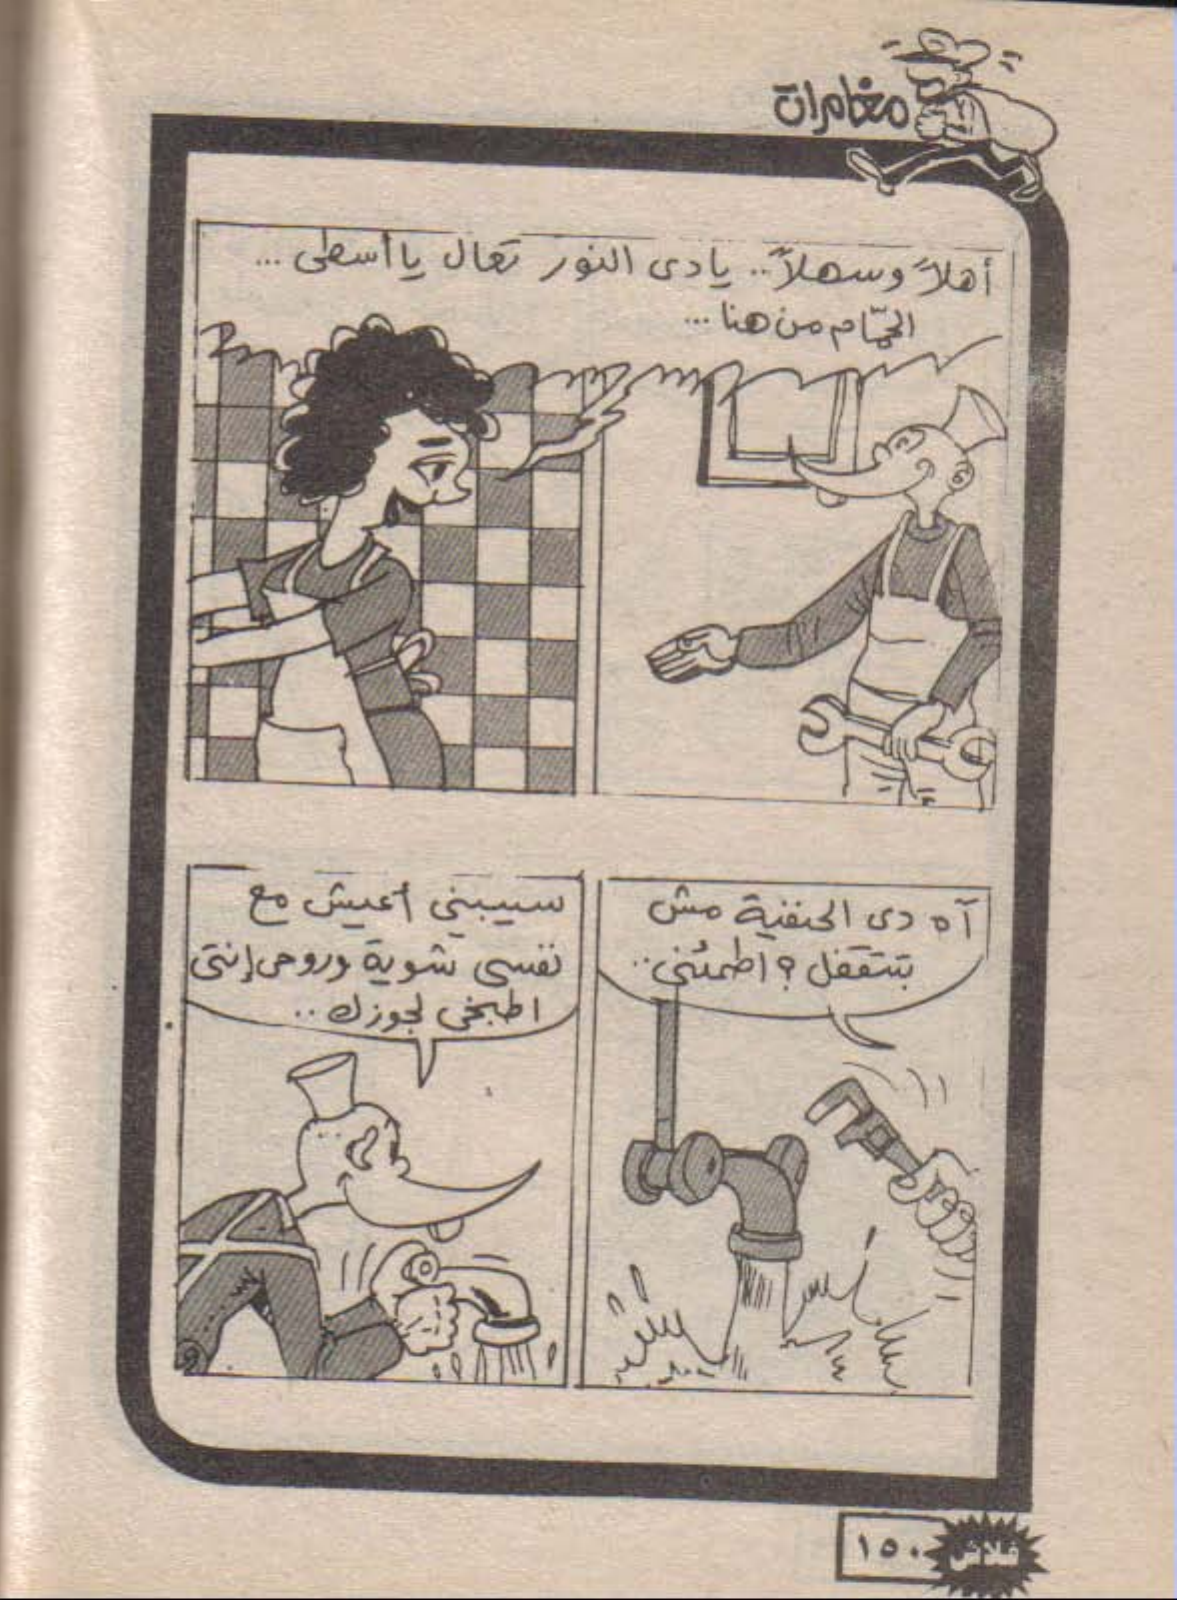 مغامرات
أهلاً وسهلاً.. يادى النور تعال يا أسطى ...
الحمّام من هنا ...
آه دى الحنفية مش
بتتقفل؟ اطمئنى..
سيبينى أعيش مع
نفسى شوية وروحى إنتى
اطبخى لجوزك ..
فلاش
١٥٠